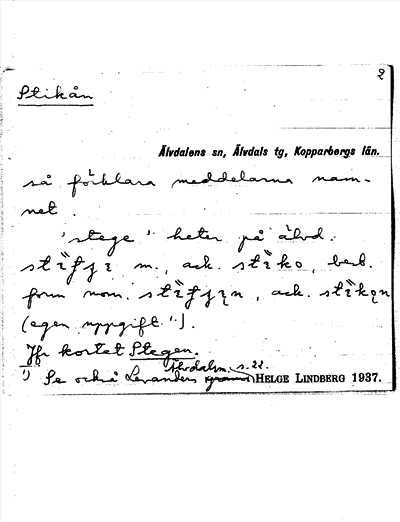 2
Stikån
Älvdalens sn, Älvdals tg, Kopparbergs län.
så förklara meddelarna nam-
net.
'stege' heter på älvd.
m., ack. stĩko, best.
form nom. , ack.
(egen uppgift ¹⁾).
Jfr kortet Stegen.
¹⁾ Se också Levanders Älvdalsm. s. 22.
HELGE LINDBERG 1937.